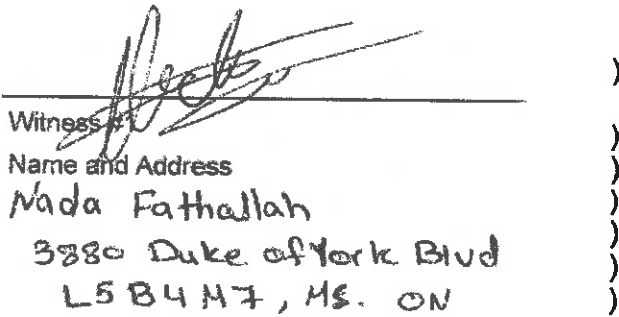 )
Witness #1
)
Name and Address )
Nada Fathallah )
3880 Duke of York Blvd )
)
L5B4M7, MS. ON )